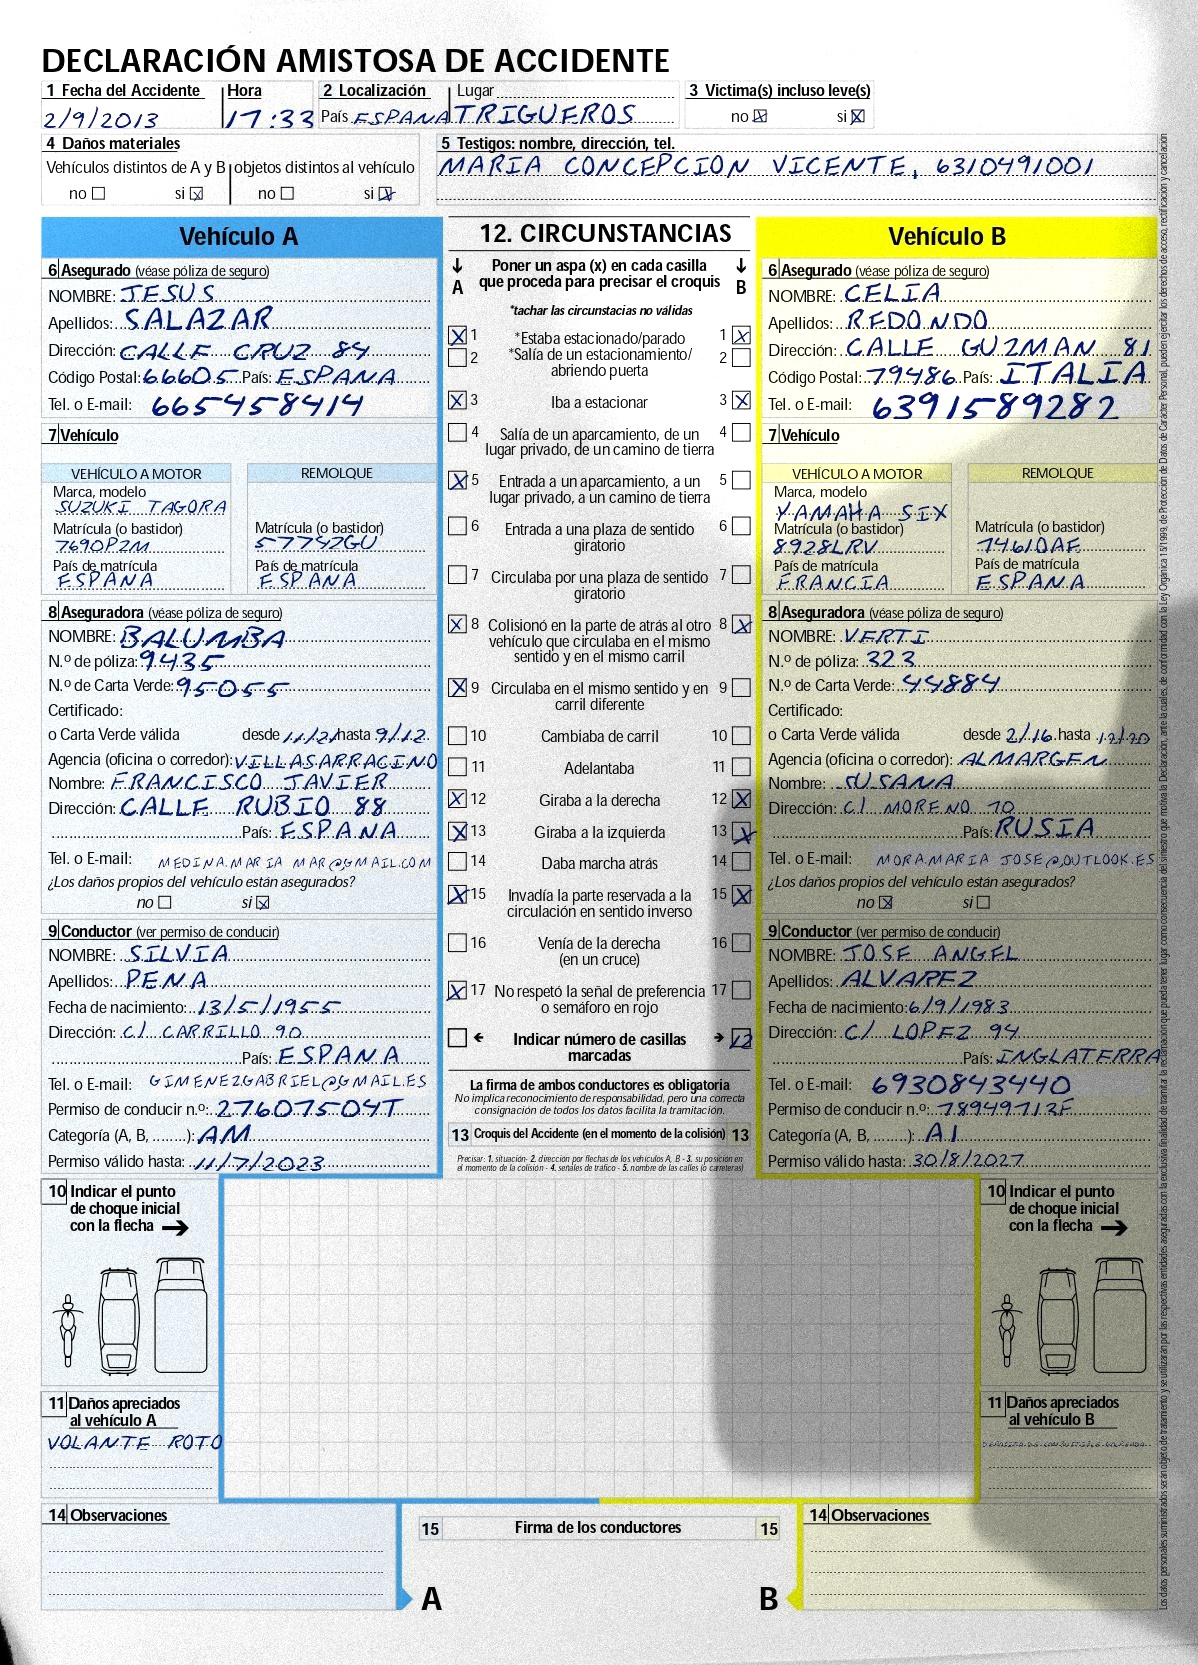 DECLARACIÓN AMISTOSA DE ACCIDENTE
1 Fecha del Accidente Hora 2 Localización Lugar 3 Victima(s) incluso leve(s)
2/9/2013 17:33 País ESPANA TRIGUEROS no si
4 Daños materiales 5 Testigos: nombre, dirección, tel.
Vehículos distintos de A y B objetos distintos al vehículo MARIA CONCEPCION VICENTE, 6310491001
no si no si
Vehículo A
6 Asegurado (véase póliza de seguro)
NOMBRE: JESUS
Apellidos: SALAZAR
Dirección: CALLE CRUZ 84
Código Postal: 66605 País: ESPANA
Tel. o E-mail: 665458414
7 Vehículo
VEHÍCULO A MOTOR REMOLQUE
Marca, modelo
SUZUKI TAGORA
Matrícula (o bastidor) Matrícula (o bastidor)
7690PZM 5779ZGU
País de matrícula País de matrícula
ESPANA ESPANA
8 Aseguradora (véase póliza de seguro)
NOMBRE: BALUMBA
N.º de póliza: 9435
N.º de Carta Verde: 95055
Certificado:
o Carta Verde válida desde 11/21 hasta 9/12
Agencia (oficina o corredor): VILLASARRACINO
Nombre: FRANCISCO JAVIER
Dirección: CALLE RUBIO 88
País: ESPANA
Tel. o E-mail: MEDINA.MARIA MAR@GMAIL.COM
¿Los daños propios del vehículo están asegurados?
no si
9 Conductor (ver permiso de conducir)
NOMBRE: SILVIA
Apellidos: PENA
Fecha de nacimiento: 13/5/1955
Dirección: C/ CARRILLO 90
País: ESPANA
Tel. o E-mail: GIMENEZGABRIEL@GMAIL.ES
Permiso de conducir n.º: 27607504T
Categoría (A, B, ........): AM
Permiso válido hasta: 11/7/2023
12. CIRCUNSTANCIAS
A Poner un aspa (x) en cada casilla que proceda para precisar el croquis B
*tachar las circunstacias no válidas
1 *Estaba estacionado/parado 1
2 *Salía de un estacionamiento/ abriendo puerta 2
3 Iba a estacionar 3
4 Salía de un aparcamiento, de un lugar privado, de un camino de tierra 4
5 Entrada a un aparcamiento, a un lugar privado, a un camino de tierra 5
6 Entrada a una plaza de sentido giratorio 6
7 Circulaba por una plaza de sentido giratorio 7
8 Colisionó en la parte de atrás al otro vehículo que circulaba en el mismo sentido y en el mismo carril 8
9 Circulaba en el mismo sentido y en carril diferente 9
10 Cambiaba de carril 10
11 Adelantaba 11
12 Giraba a la derecha 12
13 Giraba a la izquierda 13
14 Daba marcha atrás 14
15 Invadía la parte reservada a la circulación en sentido inverso 15
16 Venía de la derecha (en un cruce) 16
17 No respetó la señal de preferencia o semáforo en rojo 17
Indicar número de casillas marcadas 12
La firma de ambos conductores es obligatoria
No implica reconocimiento de responsabilidad, pero una correcta consignación de todos los datos facilita la tramitación.
13 Croquis del Accidente (en el momento de la colisión) 13
Precisar: 1. situación- 2. dirección por flechas de los vehículos A, B - 3. su posición en el momento de la colisión - 4. señales de tráfico - 5. nombre de las calles (o carreteras)
Vehículo B
6 Asegurado (véase póliza de seguro)
NOMBRE: CELIA
Apellidos: REDONDO
Dirección: CALLE GUZMAN 81
Código Postal: 79486 País: ITALIA
Tel. o E-mail: 6391589282
7 Vehículo
VEHÍCULO A MOTOR REMOLQUE
Marca, modelo
YAMAHA SIX
Matrícula (o bastidor) Matrícula (o bastidor)
8928LRV 7461DAE
País de matrícula País de matrícula
FRANCIA ESPANA
8 Aseguradora (véase póliza de seguro)
NOMBRE: VERTI
N.º de póliza: 323
N.º de Carta Verde: 44884
Certificado:
o Carta Verde válida desde 2/16 hasta 12/20
Agencia (oficina o corredor): ALMARGEN
Nombre: SUSANA
Dirección: C/ MORENO 70
País: RUSIA
Tel. o E-mail: MORA.MARIA JOSE@OUTLOOK.ES
¿Los daños propios del vehículo están asegurados?
no si
9 Conductor (ver permiso de conducir)
NOMBRE: JOSE ANGEL
Apellidos: ALVAREZ
Fecha de nacimiento: 6/9/1983
Dirección: C/ LOPEZ 94
País: INGLATERRA
Tel. o E-mail: 6930843440
Permiso de conducir n.º: 78949713F
Categoría (A, B, ........): A1
Permiso válido hasta: 30/8/2027
10 Indicar el punto de choque inicial con la flecha
11 Daños apreciados al vehículo A
VOLANTE ROTO
14 Observaciones
15 Firma de los conductores 15
A B
10 Indicar el punto de choque inicial con la flecha
11 Daños apreciados al vehículo B
14 Observaciones